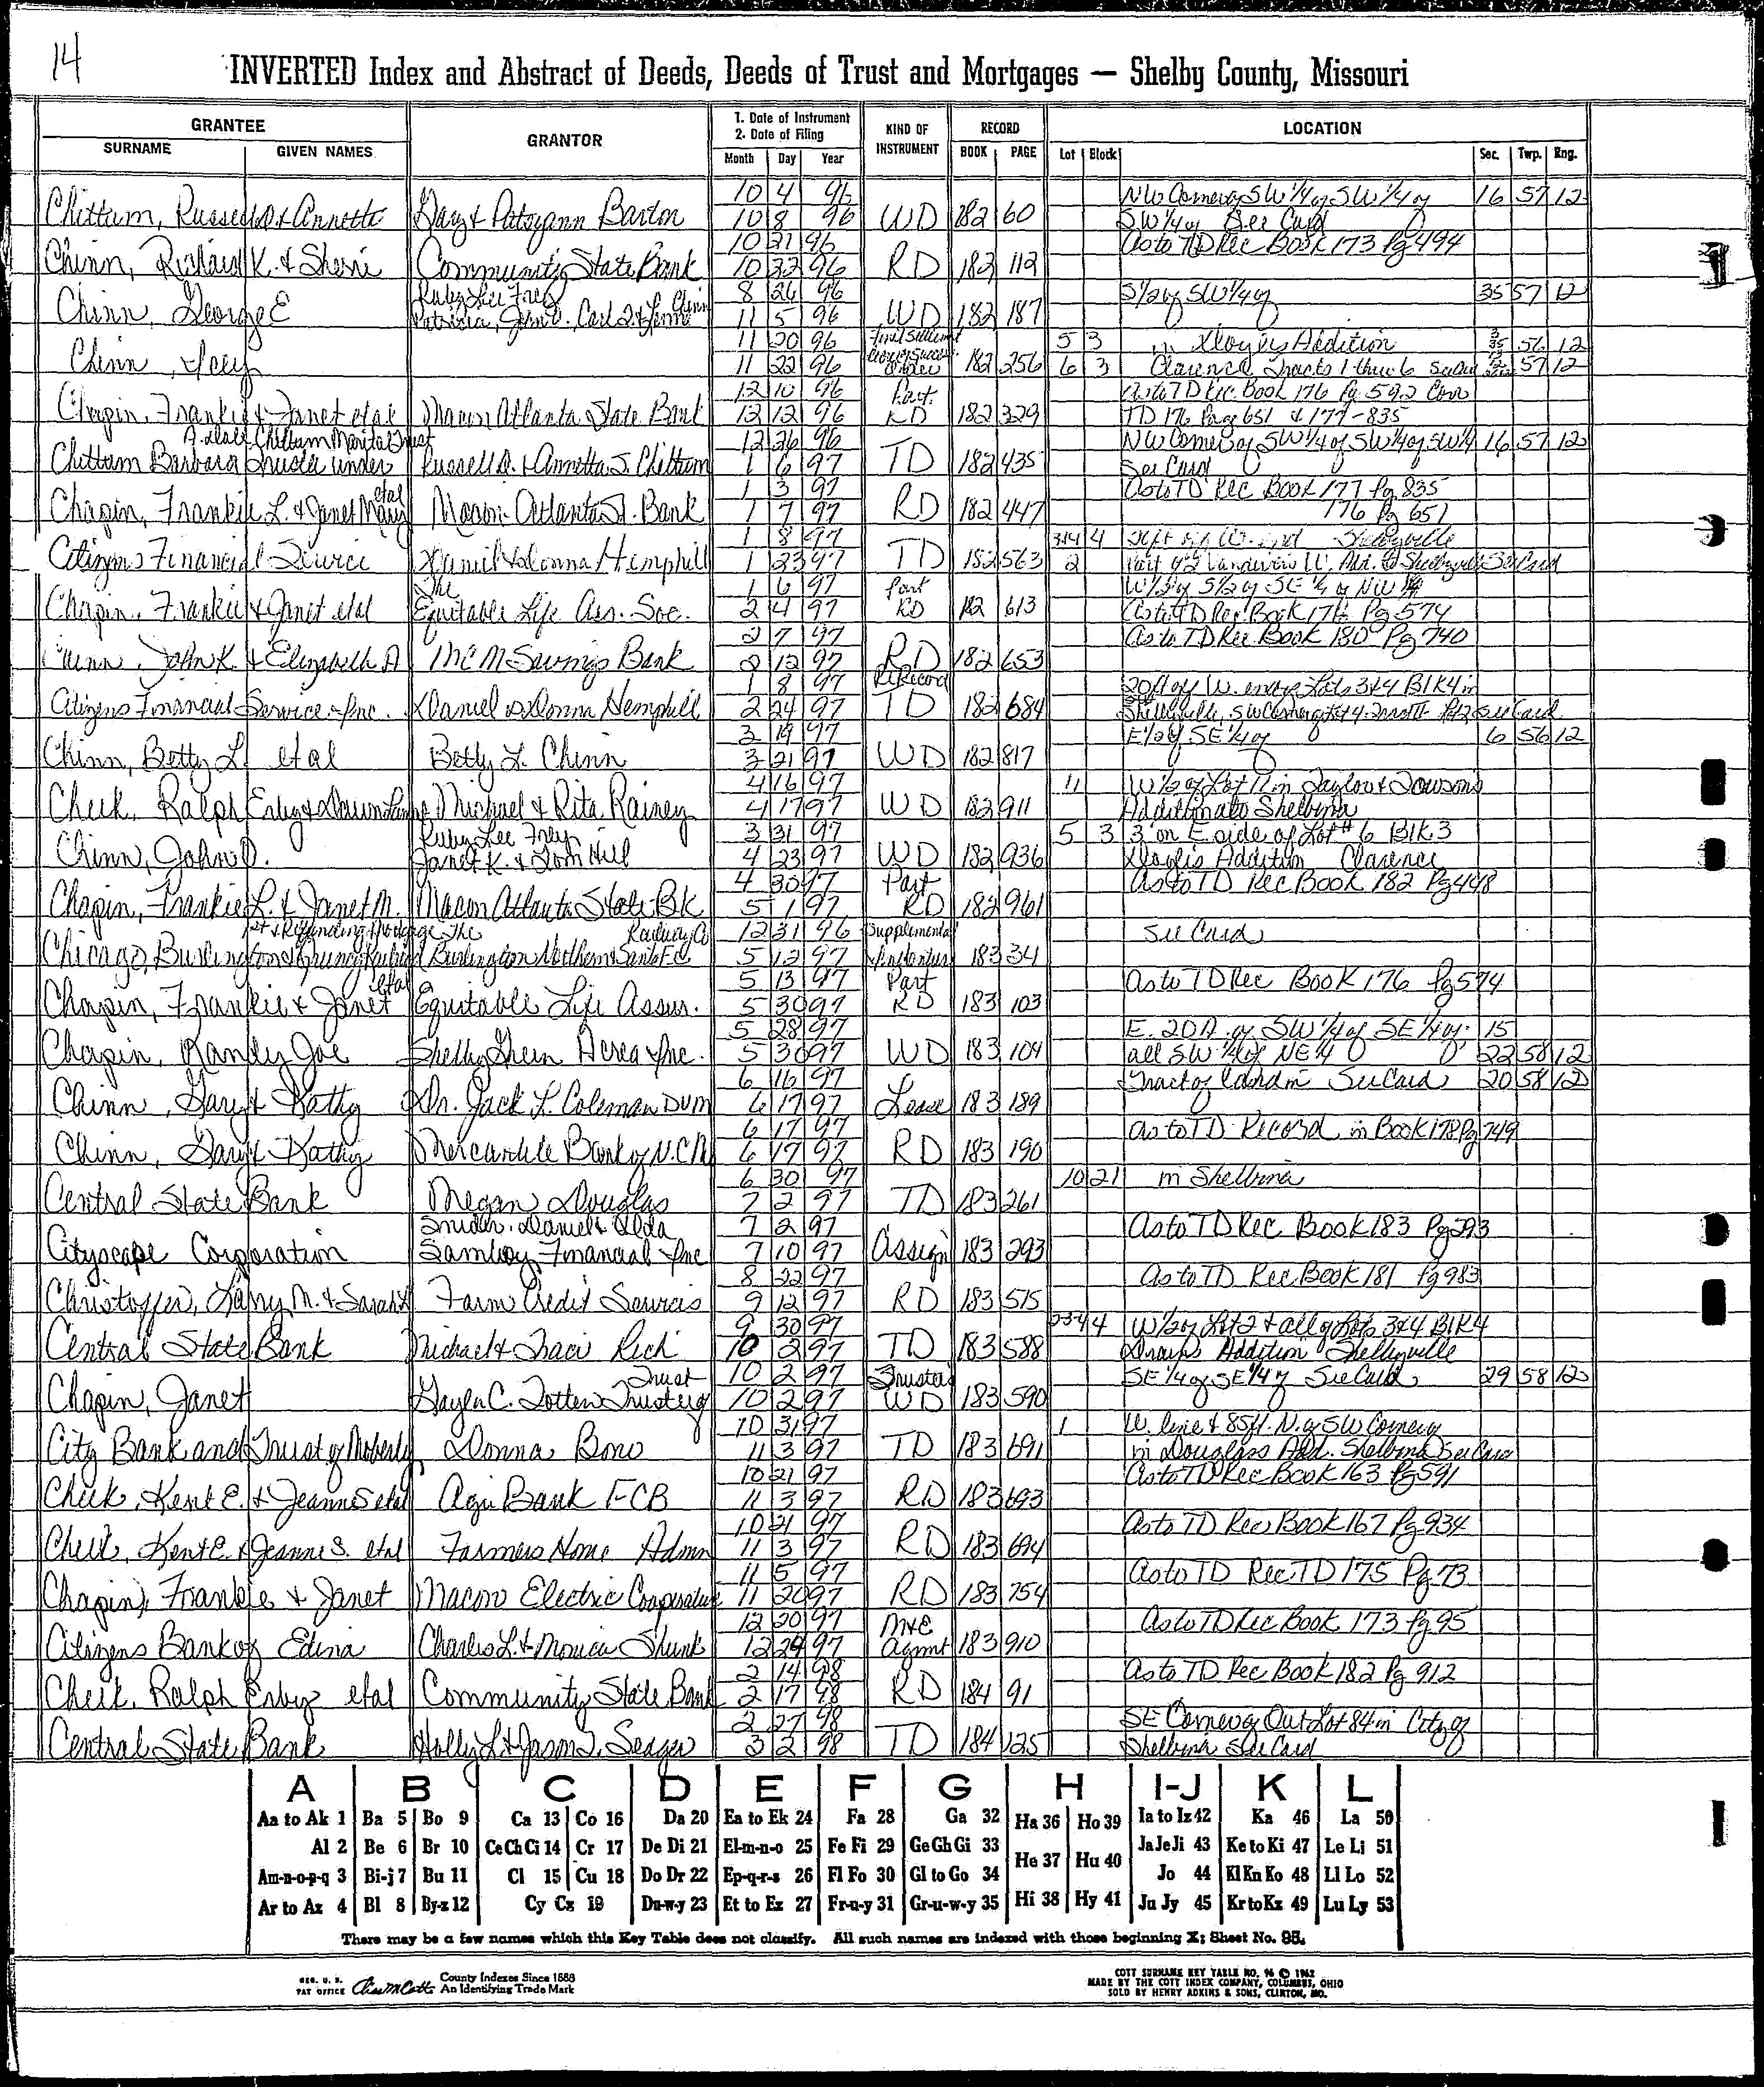 14
INVERTED Index and Abstract of Deeds, Deeds of Trust and Mortgages — Shelby County, Missouri
GRANTEE GRANTOR 1. Date of Instrument 2. Date of Filing KIND OF INSTRUMENT RECORD LOCATION
SURNAME GIVEN NAMES Month Day Year BOOK PAGE Lot Block Sec. Twp. Rng.
10 4 96 NW Corner of SW 1/4 of SW 1/4 of 16 57 12
Chittum, Russell D. & Annette Gary & Patsyann Barton 10 8 96 WD 182 60 SW 1/4 of See Card
10 21 96 As to TD Rec Book 173 Pg 494
Chinn, Richard K. & Sherri Community State Bank 10 22 96 RD 182 112
Ruby Lee Frey 8 26 96 S 1/2 of SW 1/4 of 35 57 12
Chinn, George E Patricia, John D. Carl Chinn 11 5 96 WD 182 187
11 20 96 Final Settlement 5 3 in Addition 56 12
Chinn, 11 22 96 182 256 6 3 Clarence Tracts 1 thru 6 57 12
12 10 96 Part As to TD Rec. Book 176 Pg 592 Corr
Chapin, Frankie & Janet etal Macon Atlanta State Bank 12 12 96 RD 182 329 TD 176 Page 651 & 177-835
Chittum Marital Trust 12 26 96 NW Corner of SW 1/4 of SW 1/4 of SW 1/4 16 57 12
Chittum Barbara Trustee under Russell D. & Annetta S. Chittum 1 6 97 TD 182 435 See Card
etal 1 3 97 As to TD Rec Book 177 Pg 835
Chapin, Frankie L. & Janet Mary Macon-Atlanta St. Bank 1 7 97 RD 182 447 176 Pg 651
1 8 97 3&4 4 Shelbyville
Citizens Financial Service Daniel & Donna Hemphill 1 23 97 TD 182 563 2 Part of 2 W. Add. to Shelbyville See Card
The 1 6 97 Part W 1/2 of S 1/2 of SE 1/4 of NW 1/4
Chapin, Frankie & Janet etal Equitable Life Ass. Soc. 2 4 97 RD 182 613 As to TD Rec Book 176 Pg 574
2 7 97 As to TD Rec. Book 180 Pg 740
Chinn, John K & Elizabeth A M & M Savings Bank 2 12 97 RD 182 653
1 8 97 ReRecord 20 ft of W. end of Lots 3&4 Blk 4 in
Citizens Financial Service Inc. Daniel & Donna Hemphill 2 24 97 TD 182 684 Shelbyville, SW Corner of Lot 4 See Card
3 19 97 E 1/2 of SE 1/4 of 6 56 12
Chinn, Betty L etal Betty L. Chinn 3 21 97 WD 182 817
4 16 97 11 W 1/2 of Lot 11 in Taylor & Dowsons
Cheek, Ralph Erby & Dawn Michael & Rita Rainey 4 17 97 WD 182 911 Addition to Shelbina
Ruby Lee Frey 3 31 97 5 3 3' on E side of Lot # 6 Blk 3
Chinn, John D. Janet K. & Tom Hill 4 23 97 WD 182 936 Addition Clarence
4 30 97 Part As to TD Rec Book 182 Pg 448
Chapin, Frankie L. & Janet M. Macon Atlanta State Bk 5 1 97 RD 182 961
1st & Refunding Mortgage The Railway Co 12 31 96 Supplemental See Card
Chicago, Burlington & Quincy Railroad Burlington Northern Santa Fe 5 12 97 Indenture 183 34
etal 5 13 97 Part As to TD Rec Book 176 Pg 574
Chapin, Frankie & Janet Equitable Life Assur. 5 30 97 RD 183 103
5 28 97 E. 20 A. of SW 1/4 of SE 1/4 of 15
Chapin, Randy Joe Shelby Acres Inc. 5 30 97 WD 183 104 all SW 1/4 of NE 1/4 22 58 12
6 16 97 Tract of land in See Card 20 58 12
Chinn, Gary & Kathy Dr. Jack L. Coleman DVM 6 17 97 Lease 183 189
6 17 97 As to TD Record in Book 178 Pg 749
Chinn, Gary & Kathy Mercantile Bank of N.C.M 6 17 97 RD 183 190
6 30 97 10 21 in Shelbina
Central State Bank Megan Douglas 7 2 97 TD 183 261
Snider, Daniel & Alda 7 2 97 As to TD Rec Book 183 Pg 293
Cityscape Corporation Samboy Financial Inc 7 10 97 Assign 183 293
8 22 97 As to TD Rec Book 181 Pg 983
Christoffer, Larry M. & Sarah L Farm Credit Services 9 12 97 RD 183 515
9 30 97 2 3&4 4 W 1/2 of Lot 2 & all of Lots 3&4 Blk 4
Central State Bank Michael & Traci Rich 10 2 97 TD 183 588 Addition Shelbyville
Trust 10 2 97 Trustee SE 1/4 of SE 1/4 of See Card 29 58 12
Chapin, Janet Gaylen C. Totten Trustee of 10 2 97 WD 183 590
10 31 97 1 W. line & 85 ft. N. of SW Corner of
City Bank and Trust of Moberly Donna Bono 11 3 97 TD 183 691 in Douglass Add. Shelbina See Card
10 21 97 As to TD Rec Book 163 Pg 591
Cheek, Kent E. & Jeanne S etal Agri Bank FCB 11 3 97 RD 183 693
10 21 97 As to TD Rec Book 167 Pg 934
Cheek, Kent E. & Jeanne S. etal Farmers Home Admn 11 3 97 RD 183 694
11 5 97 As to TD Rec TD 175 Pg 73
Chapin, Frankie & Janet Macon Electric Cooperative 11 20 97 RD 183 754
12 20 97 M&E As to TD Rec Book 173 Pg 95
Citizens Bank of Edina Charles L. & Monica Shunk 12 29 97 Agmt 183 910
2 14 98 As to TD Rec Book 182 Pg 912
Cheek, Ralph Erby etal Community State Bank 2 17 98 RD 184 91
2 27 98 SE Corner of Out Lot 84 in City of
Central State Bank Holly L & Jason Seager 3 2 98 TD 184 125 Shelbina See Card
A B C D E F G H I-J K L
Aa to Ak 1 Ba 5 Bo 9 Ca 13 Co 16 Da 20 Ea to Ek 24 Fa 28 Ga 32 Ha 36 Ho 39 Ia to Iz 42 Ka 46 La 50
Al 2 Be 6 Br 10 Ce Ch Ci 14 Cr 17 De Di 21 El-m-n-o 25 Fe Fi 29 Ge Gh Gi 33 He 37 Hu 40 Ja Je Ji 43 Ke to Ki 47 Le Li 51
Am-n-o-p-q 3 Bi-j 7 Bu 11 Cl 15 Cu 18 Do Dr 22 Ep-q-r-s 26 Fl Fo 30 Gl to Go 34 Jo 44 Kl Kn Ko 48 Ll Lo 52
Ar to Az 4 Bl 8 By-z 12 Cy Cz 19 Du-w-y 23 Et to Ez 27 Fr-u-y 31 Gr-u-w-y 35 Hi 38 Hy 41 Ju Jy 45 Kr to Kz 49 Lu Ly 53
There may be a few names which this Key Table does not classify. All such names are indexed with those beginning X; Sheet No. 95.
REG. U. S. PAT OFFICE County Indexes Since 1888 An Identifying Trade Mark
COTT SURNAME KEY TABLE NO. 96 © 1962
MADE BY THE COTT INDEX COMPANY, COLUMBUS, OHIO
SOLD BY HENRY ADKINS & SONS, CLINTON, MO.